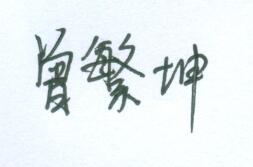 曾繁坤